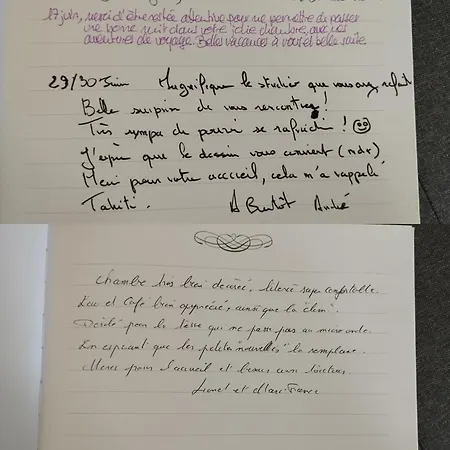 17 juin, merci d'être restée attentive pour me permettre de passer
une bonne nuit dans votre jolie chambre, que mes
aventures de voyage. Belles vacances à vous et belle suite
29/30 Juin Magnifique le que vous avez refait
Belle surprise de vous rencontrer!
Très sympa de pouvoir se rafraichir !
J'espère que le dessin vous convient (ndr)
Merci pour votre accueil, cela m'a rappelé
Tahiti. A Bientôt André
Chambre très bien décorée, literie super confortable.
Eau et Café bien appréciés, ainsi que la clim.
Désolé pour la tasse qui ne passe pas au micro onde.
En espérant que les petites "nouvelles" la remplace.
Merci pour l'accueil et bisous aux
Lionel et Marie-France